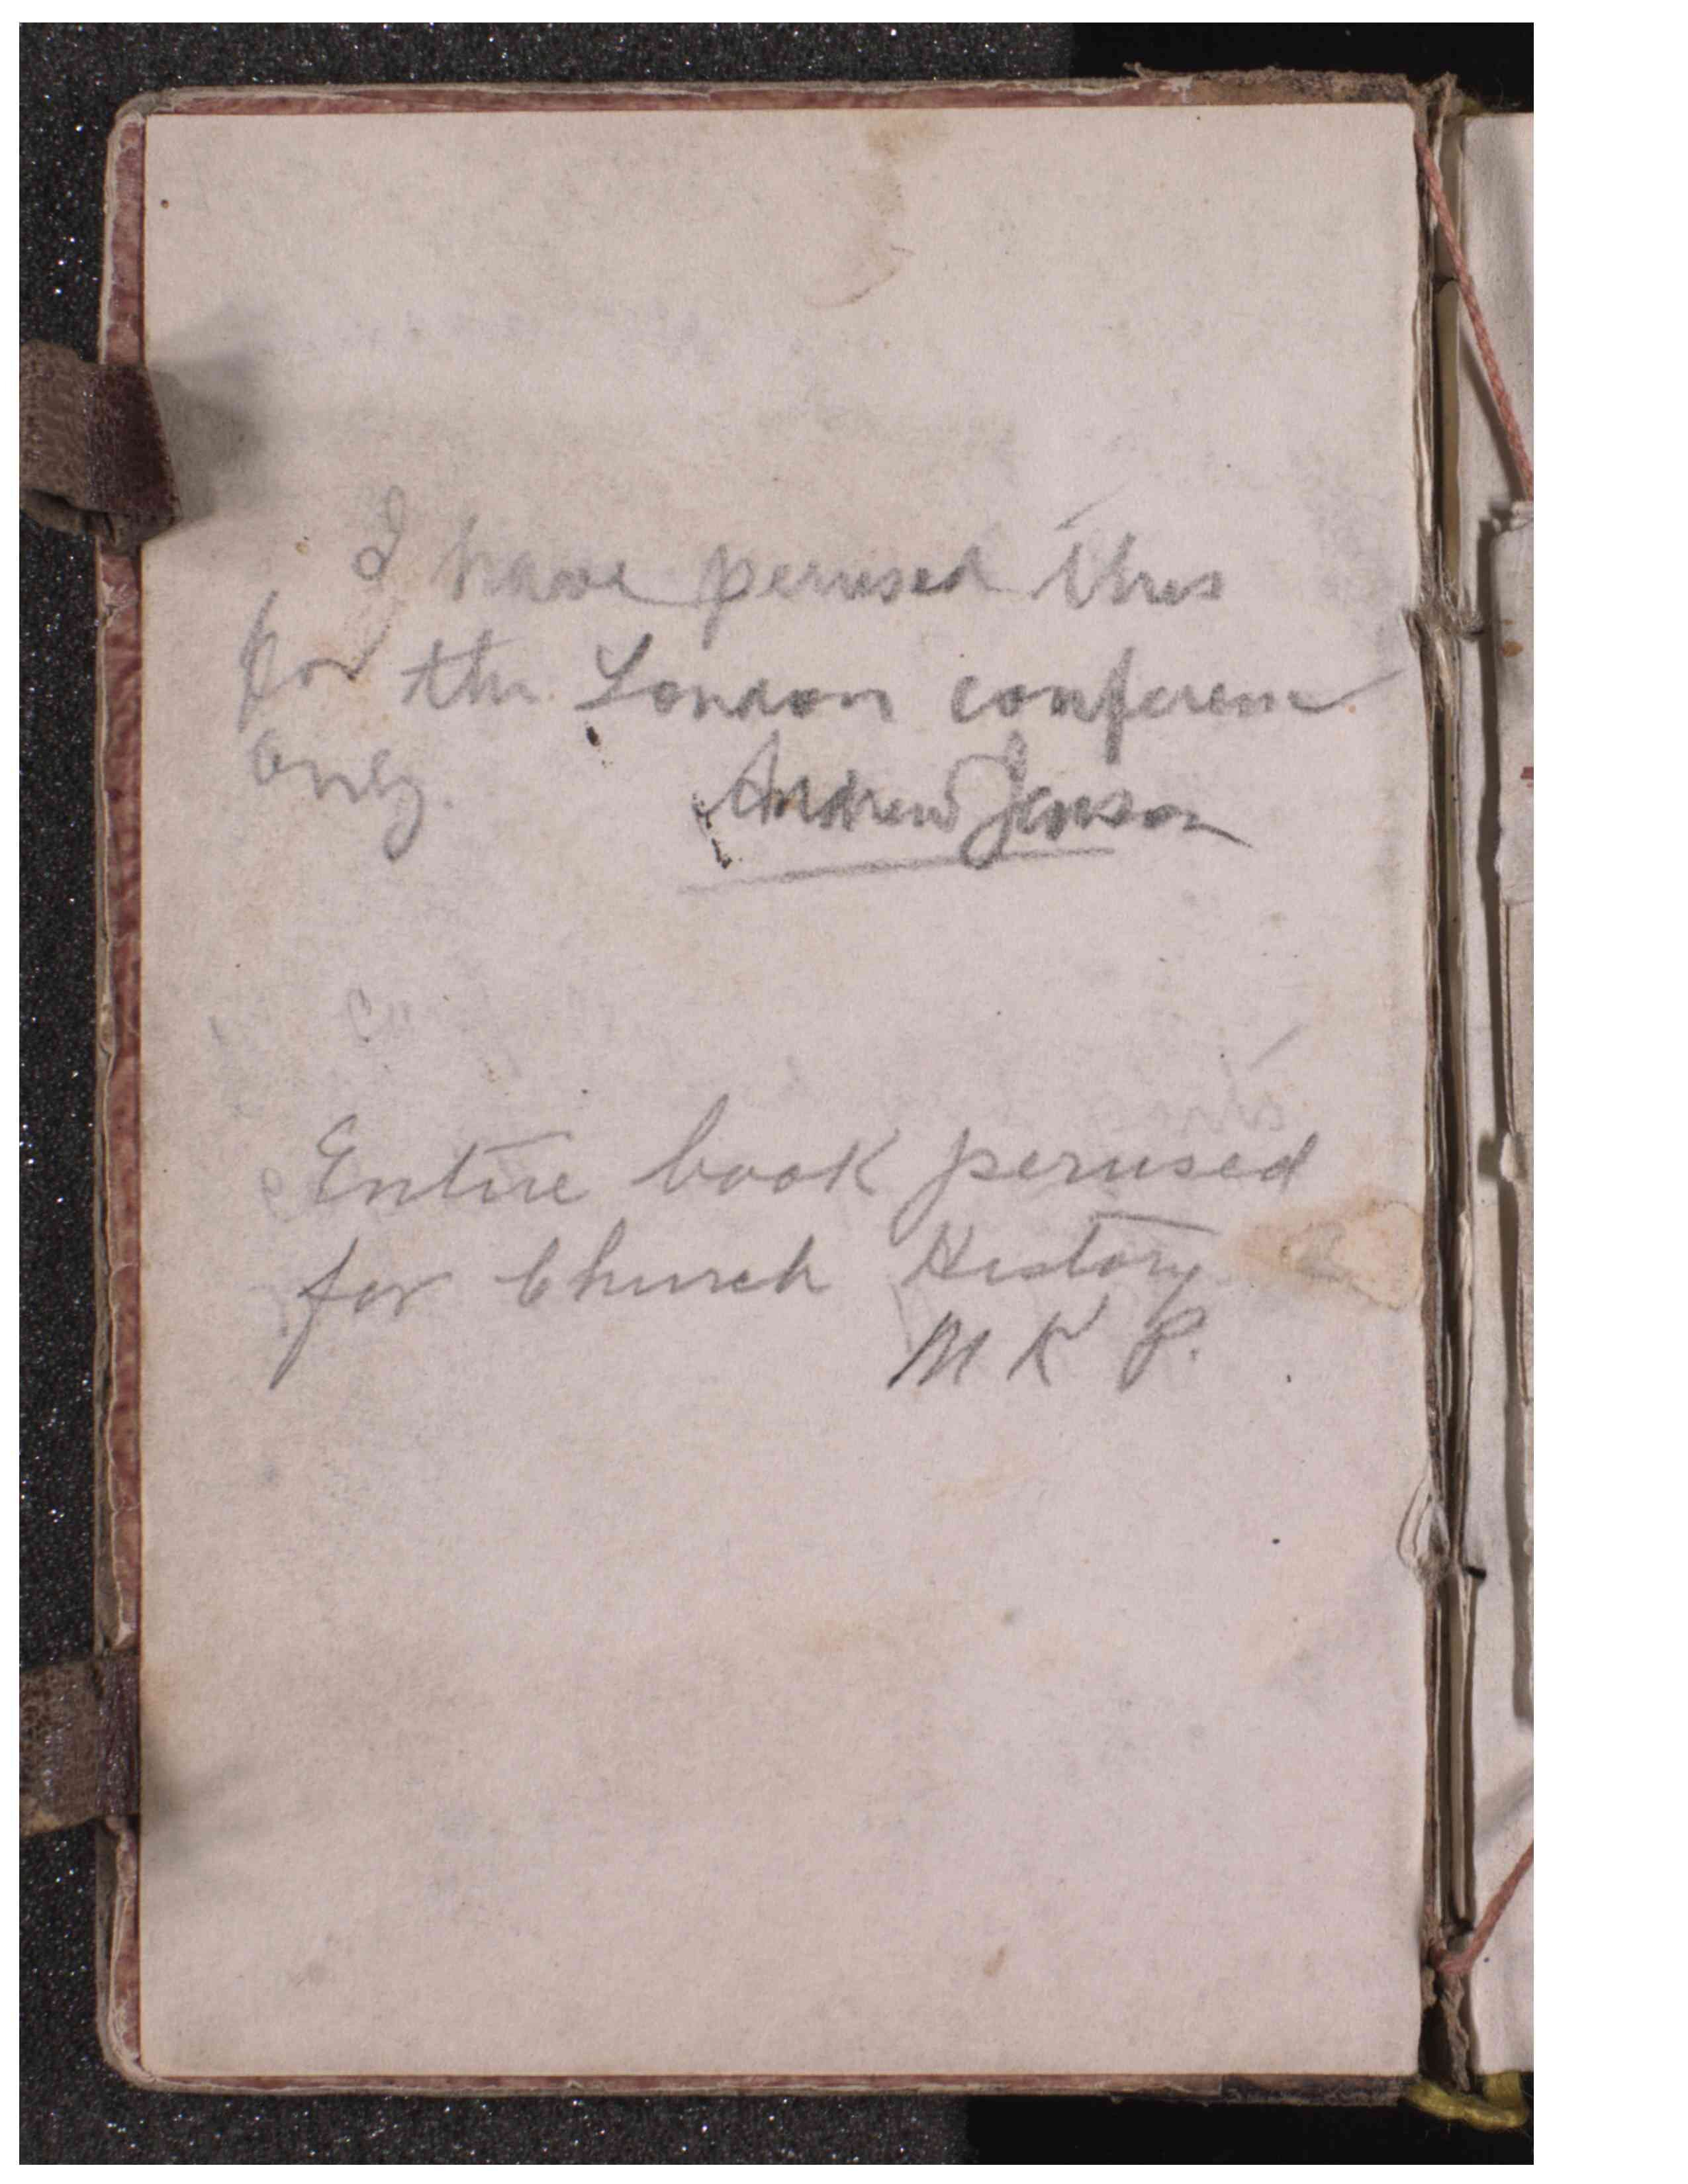 I have perused this
for the London conference
only. Andrew Jenson
Entire book perused
for Church History
M K P.